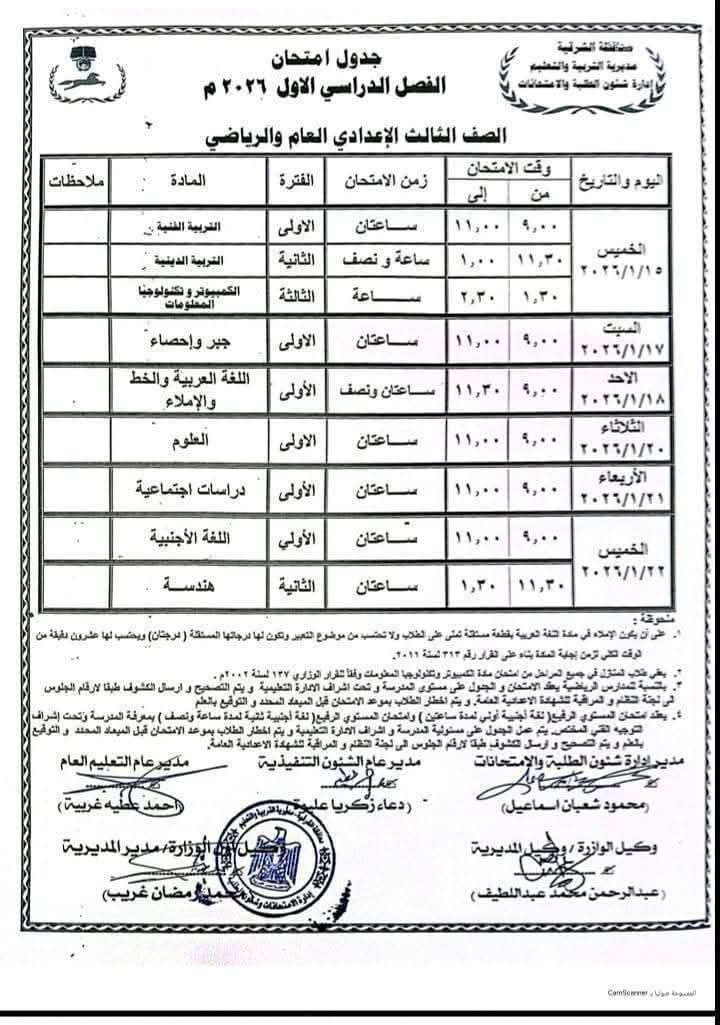 محافظة الشرقية
مديرية التربية والتعليم
إدارة شئون الطلبة والامتحانات
جدول امتحان
الفصل الدراسي الاول ٢٠٢٦ م
الصف الثالث الإعدادي العام والرياضي
اليوم والتاريخ | وقت الامتحان من إلى | زمن الامتحان | الفترة | المادة | ملاحظات
الخميس ٢٠٢٦/١/١٥ | ٩,٠٠ | ١١,٠٠ | ســاعتان | الاولى | التربية الفنية
١١,٣٠ | ١,٠٠ | ساعة و نصف | الثانية | التربية الدينية
١,٣٠ | ٢,٣٠ | ســاعة | الثالثة | الكمبيوتر و تكنولوجيا المعلومات
السبت ٢٠٢٦/١/١٧ | ٩,٠٠ | ١١,٠٠ | ســاعتان | الاولى | جبر وإحصاء
الاحد ٢٠٢٦/١/١٨ | ٩,٠٠ | ١١,٣٠ | ســاعتان ونصف | الأولى | اللغة العربية والخط والإملاء
الثلاثاء ٢٠٢٦/١/٢٠ | ٩,٠٠ | ١١,٠٠ | ســاعتان | الاولى | العلوم
الأربعاء ٢٠٢٦/١/٢١ | ٩,٠٠ | ١١,٠٠ | ســاعتان | الأولى | دراسات اجتماعية
الخميس ٢٠٢٦/١/٢٢ | ٩,٠٠ | ١١,٠٠ | ســاعتان | الأولي | اللغة الأجنبية
١١,٣٠ | ١,٣٠ | ســاعتان | الثانية | هندسة
ملحوظة :
١. على أن يكون الإملاء في مادة اللغة العربية بقطعة مستقلة تملى على الطلاب ولا تحتسب من موضوع التعبير وتكون لها درجاتها المستقلة ( درجتان) ويحتسب لها عشرون دقيقة من
الوقت الكلي لزمن إجابة المادة بناء على القرار رقم ٣١٣ لسنة ٢٠١١.
٢. يعفي طلاب المنازل في جميع المراحل من امتحان مادة الكمبيوتر وتكنولوجيا المعلومات وفقاً للقرار الوزاري ١٣٧ لسنة ٢٠٠٢م.
٣. بالنسبة للمدارس الرياضية يعقد الامتحان و الجدول على مستوي المدرسة و تحت اشراف الادارة التعليمية و يتم التصحيح و ارسال الكشوف طبقا لارقام الجلوس
الى لجنة النظام و المراقبة للشهادة الاعدادية العامة. و يتم اخطار الطلاب بموعد الامتحان قبل الميعاد المحدد و التوقيع بالعلم
٤. يعقد امتحان المستوي الرفيع( لغة أجنبية أولي لمدة ساعتين ) وامتحان المستوي الرفيع( لغة أجنبية ثانية لمدة ساعة ونصف ) بمعرفة المدرسة وتحت إشراف
التوجيه الفني المختص. يتم عمل الجدول على مسئولية المدرسة و اشراف الادارة التعليمية و يتم اخطار الطلاب بموعد الامتحان قبل الميعاد المحدد و التوقيع
بالعلم و يتم التصحيح و ارسال الكشوف طبقا لارقام الجلوس الى لجنة النظام و المراقبة للشهادة الاعدادية العامة.
مدير إدارة شئون الطلبة والامتحانات | مدير عام الشئون التنفيذية | مدير عام التعليم العام
(محمود شعبان اسماعيل) | (دعاء زكريا عليوة) | (احمد عطيه غريبة)
وكيل الوازرة / وكيل المديرية | وكيل أول الوزارة / مدير المديرية
(عبدالرحمن محمد عبداللطيف) | رمضان غريب)
الممسوحة ضوئيا بـ CamScanner